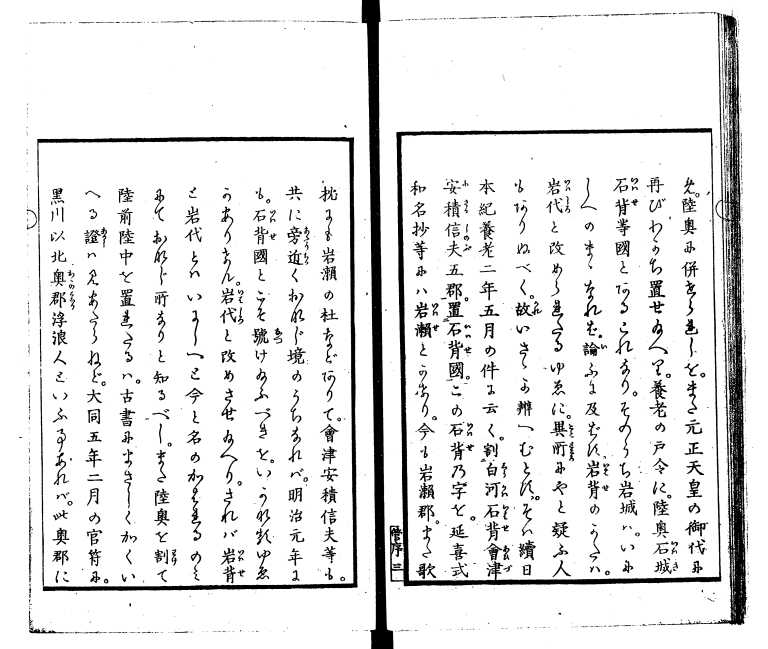 め。陸奥に併せられしを。また元正天皇の御代に
再びわかち置せ給へり。養老の戸令に。陸奥石城
石背等國とあるこれなり。そのうち岩城は。いに
しへのまゝなれば。論ふに及ばず。岩背のかたは。
岩代と改められたるゆゑに。異所にやと疑ふ人
もありぬべく。故いさゝか辨へむとす。そは續日
本紀養老二年五月の件に云く。割白河石背會津
安積信夫五郡。置石背國。この石背乃字を。延喜式
和名抄等には岩瀬とかけり。今も岩瀬郡。また歌
枕にも岩瀬の社などありて。會津安積信夫等も。
共に旁近くおなじ境のうちなれば。明治元年に
も。石背國とこそ號け給ふべきを。いかなるゆゑ
かありけん。岩代と改めさせ給へり。されば岩背
と岩代とはいにしへと今と名のかはれるのみ
にておなじ所なりと知るべし。また陸奥を割て
陸前陸中を置れたるは。古書にまさしくかくい
へる證は見あたらねど。大同五年二月の官符に。
黒川以北奥郡浮浪人といふ事あれば。此奥郡に
序三